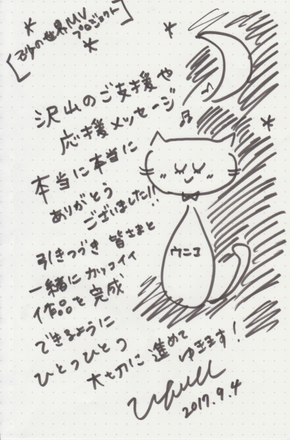 [砂の世界MV
プロジェクト]
沢山のご支援や
応援メッセージ
本当に本当に
ありがとう
ございました!!
引きつづき 皆さまと
一緒にカッコイイ
作品を完成
できるように
ひとつひとつ
大切に進めて
ゆきます!
ウニコ
2017.9.4